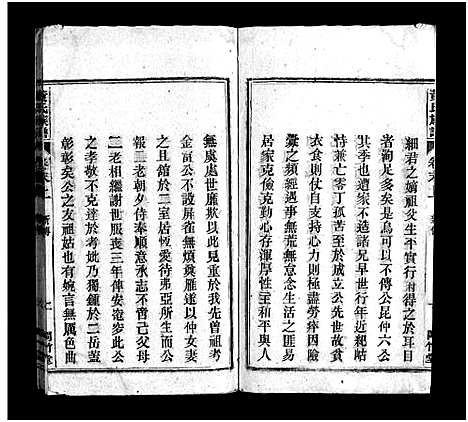 董氏族譜
卷末上
細君之嫡祖父生平實行得之於耳目
者洵足多矣是烏可以不傳公昆仲六公
其季也遭家不造諸兄早世行年近杞岵
恃兼亡零丁孤苦至於成立公先世故貧
衣食則仗自支持心力則極盡勞瘁因險
釁之多經遇悲無荒無意念生活之匪易
居家克儉克勤心存渾厚性主和平與人
無虞處世廉欺以此見重於我先曾祖考
金諠公不設屏雀無煩奠雁遂以仲女妻
之且館於二室居恆愛待弗亞所生而公
報二老朝夕侍奉順意承志不啻父母
二老相繼謝世服喪三年俾安窀穸此公
之孝敬不克達於考妣乃獨鍾於二岳蓋
彰彰矣公之友祖姑也有婉言無厲色曲
董氏族譜
卷末上